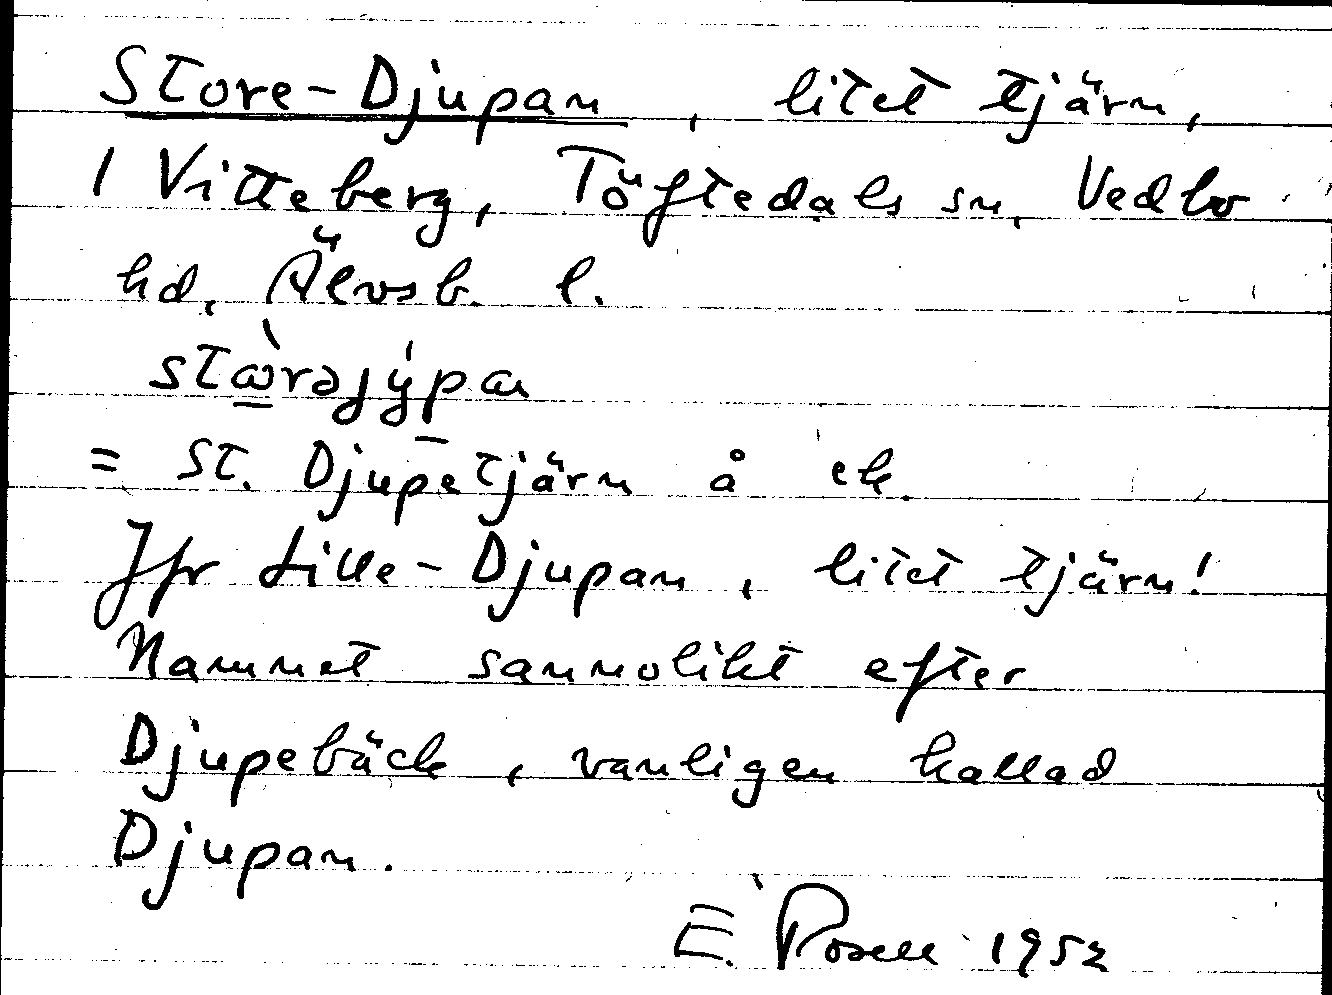 Store-Djupan, litet tjärn,
I Vitteberg, Töftedals sn, Vedbo
hd, Älvsb. l.
= St. Djupetjärn å ek.
Jfr Lille-Djupan, litet tjärn!
Namnet sannolikt efter
Djupebäck, vanligen kallad
Djupan.
E. Rosell 1952